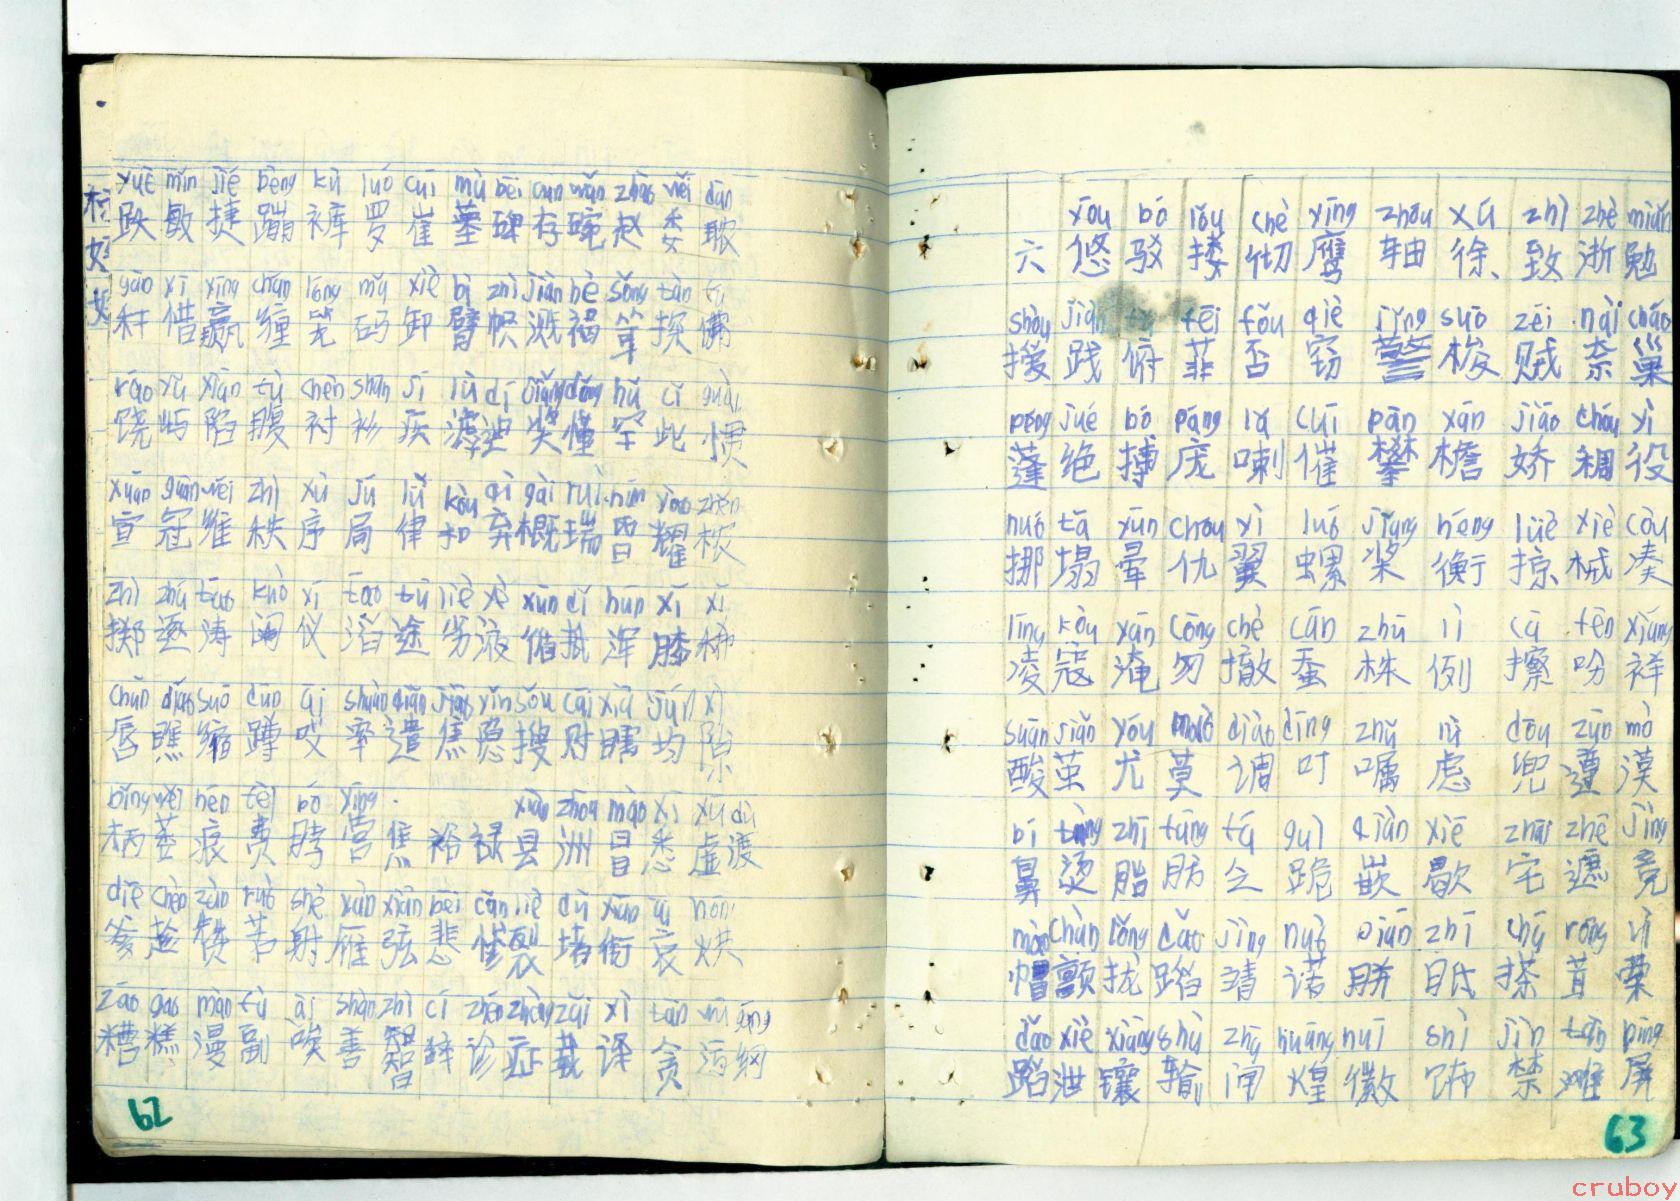 yuè mǐn jié bèng kù luó cuī mù bēi cún wǎn zhào wěi
跃 敏 捷 蹦 裤 罗 崔 墓 碑 存 碗 赵 委
xī yíng chán lóng mǎ xiè bì zhì jiàn hè sǒng tàn fú
惜 赢 缠 笼 码 卸 臂 帜 溅 褐 耸 探 佛
ráo yǔ xiàn fù chèn shān jí lǜ dí jiǎng dǒng hǎn cǐ guàn
饶 屿 陷 腹 衬 衫 疾 滤 迪 奖 懂 罕 此 惯
xuān guān wéi zhì xù jú lǜ kòu qì gài ruì mín yào
宣 冠 维 秩 序 局 律 扣 弃 概 瑞 耀
zhì zhú tāo kuò yí tāo tú liè yè xùn dǐ hún xī xī
掷 逐 涛 阔 仪 滔 途 劣 液 抵 浑 膝 稀
chún qiáo suō dūn āi shuài qiǎn jiāo yǐn sōu cái xiā jūn xì
唇 瞧 缩 蹲 哎 率 遣 焦 隐 搜 财 瞎 均 隙
bǐng wěi hén fèi bó yíng
xiàn zhōu mào xī xū dù
柄 痕 费 脖 营 焦 裕 禄 县 洲 冒 悉 虚 渡
diē chèn zàn ruò shè yàn xián bēi cǎn liè dǔ xián āi hōng
爹 趁 赞 若 射 雁 弦 悲 惨 裂 堵 衔 哀 烘
zāo gāo màn fù āi shàn zhì cí zhěn zhèng zāi yì tān gāng
糟 糕 漫 副 唉 善 智 辞 诊 症 栽 译 贪 纲
62
yōu bó lǒu chè yīng zhóu xú zhì zhè miǎn
六 悠 驳 搂 彻 鹰 轴 徐 致 浙 勉
shòu jiàn fǔ fēi fǒu qiè jǐng suō zéi nài cháo
授 践 俯 菲 否 窃 警 梭 贼 奈 巢
péng jué bó páng lǎ cuī pān yán jiāo chóu yì
蓬 绝 搏 庞 喇 催 攀 檐 娇 稠 役
nuó tā yūn chóu yì luó jiǎng héng lüè xiè còu
挪 塌 晕 仇 翼 螺 桨 衡 掠 械 凑
líng kòu yān cōng chè cán zhū lì cā fēn xiáng
凌 寇 淹 匆 撤 蚕 株 例 擦 吩 祥
suān jiǎn yóu mò diào dīng zhǔ lǜ dōu zūn mò
酸 茧 尤 莫 调 叮 嘱 虑 兜 遵 漠
bí tàng zhī fáng guì qiàn xiē zhái zhē jìng
鼻 烫 脂 肪 跪 嵌 歇 宅 遮 竞
mào chàn lǒng dǎo jìng nuò zhī chá róng
帽 颤 拢 蹈 靖 诺 搽 茸
dǎo xiè xiāng shū huáng huī shì jìn tān píng
蹈 泄 镶 输 煌 徽 饰 禁 滩 屏
63
cruboy